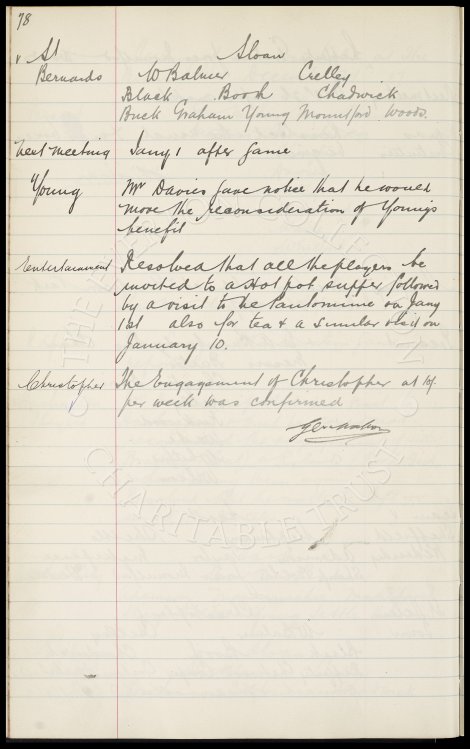 78
v St Sloan
Bernards W Balmer Crelley
Black Booth Chadwick
Buck Graham Young Mountford Woods.
Next meeting Jany 1 after game
Young Mr Davies gave notice that he would
move the reconsideration of Youngs
benefit
Entertainment Resolved that all the players be
invited to a Hot pot supper followed
by a visit to the Pantomime on Jany
1st also for tea & a similar visit on
January 10.
Christopher The Engagement of Christopher at 10/-
per week was confirmed
THE EVERTON COLLECTION
CHARITABLE TRUST